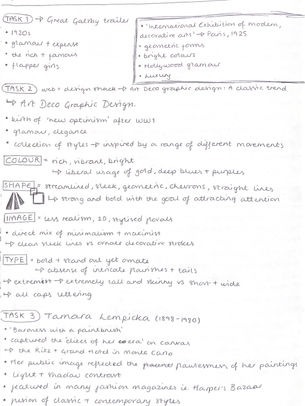 TASK 1 → Great Gatsby trailer
• 1920s
• glamour + expense
• the rich + famous
• flapper girls
• 'International Exhibition of modern,
decorative arts' → Paris, 1925
• geometric forms
• bright colours
• Hollywood glamour
• luxury
TASK 2 web + design → Art Deco graphic design: A classic trend
↳ Art Deco Graphic Design.
• birth of 'new optimism' after WW1
• glamour, elegance
• collection of styles → inspired by a range of different movements
COLOUR = rich, vibrant, bright
↳ liberal usage of gold, deep blues + purples
SHAPE = streamlined, sleek, geometric, chevrons, straight lines
↳ strong and bold with the goal of attracting attention
IMAGE = less realism, 2D, stylised
• direct mix of minimalism + maximist
↳ clean sleek lines vs ornate decorative strokes
TYPE = bold + stand out yet ornate
↳ absence of intricate flourishes + tails
↳ extremest → extremely tall and skinny vs short + wide
↳ all caps lettering
TASK 3 → Tamara Lempicka (1898-1980)
• 'Baroness with a paintbrush'
• captured the 'elect of her era' on canvas
→ the Ritz + Grand Hotel in Monte Carlo
• Her public image reflected the flawlessness of her paintings
• light + shadow contrast
• featured in many fashion magazines ie. Harper's Bazaar
• fusion of classic + contemporary styles